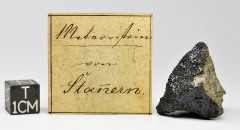 Meteorstein
von
Stannern.
T
1CM